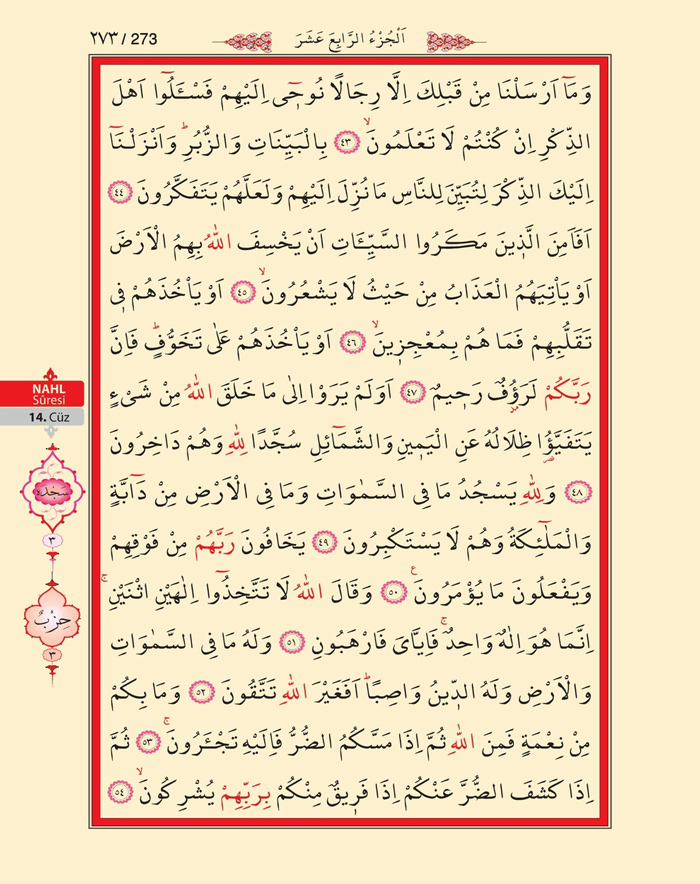 ٢٧٣ / 273
اَلْجُزْءُ الرَّابِعَ عَشَرَ
وَمَٓا اَرْسَلْنَا مِنْ قَبْلِكَ اِلَّا رِجَالًا نُوح۪ٓي اِلَيْهِمْ فَسْـَٔلُٓوا اَهْلَ
الذِّكْرِ اِنْ كُنْتُمْ لَا تَعْلَمُونَۙ ﴿٤٣﴾ بِالْبَيِّنَاتِ وَالزُّبُرِۜ وَاَنْزَلْنَٓا
اِلَيْكَ الذِّكْرَ لِتُبَيِّنَ لِلنَّاسِ مَا نُزِّلَ اِلَيْهِمْ وَلَعَلَّهُمْ يَتَفَكَّرُونَ ﴿٤٤﴾
اَفَاَمِنَ الَّذ۪ينَ مَكَرُوا السَّيِّـَٔاتِ اَنْ يَخْسِفَ اللّٰهُ بِهِمُ الْاَرْضَ
اَوْ يَأْتِيَهُمُ الْعَذَابُ مِنْ حَيْثُ لَا يَشْعُرُونَۙ ﴿٤٥﴾ اَوْ يَأْخُذَهُمْ ف۪ي
تَقَلُّبِهِمْ فَمَا هُمْ بِمُعْجِز۪ينَۙ ﴿٤٦﴾ اَوْ يَأْخُذَهُمْ عَلٰى تَخَوُّفٍۜ فَاِنَّ
رَبَّكُمْ لَرَؤُ۫فٌ رَح۪يمٌ ﴿٤٧﴾ اَوَلَمْ يَرَوْا اِلٰى مَا خَلَقَ اللّٰهُ مِنْ شَيْءٍ
يَتَفَيَّؤُ۬ا ظِلَالُهُ عَنِ الْيَم۪ينِ وَالشَّمَٓائِلِ سُجَّدًا لِلّٰهِ وَهُمْ دَاخِرُونَ
﴿٤٨﴾ وَلِلّٰهِ يَسْجُدُ مَا فِي السَّمٰوَاتِ وَمَا فِي الْاَرْضِ مِنْ دَٓابَّةٍ
وَالْمَلٰٓئِكَةُ وَهُمْ لَا يَسْتَكْبِرُونَ ﴿٤٩﴾ يَخَافُونَ رَبَّهُمْ مِنْ فَوْقِهِمْ
وَيَفْعَلُونَ مَا يُؤْمَرُونَ ﴿٥٠﴾ وَقَالَ اللّٰهُ لَا تَتَّخِذُٓوا اِلٰهَيْنِ اثْنَيْنِۚ
اِنَّمَا هُوَ اِلٰهٌ وَاحِدٌۚ فَاِيَّايَ فَارْهَبُونِ ﴿٥١﴾ وَلَهُ مَا فِي السَّمٰوَاتِ
وَالْاَرْضِ وَلَهُ الدّ۪ينُ وَاصِبًاۜ اَفَغَيْرَ اللّٰهِ تَتَّقُونَ ﴿٥٢﴾ وَمَا بِكُمْ
مِنْ نِعْمَةٍ فَمِنَ اللّٰهِ ثُمَّ اِذَا مَسَّكُمُ الضُّرُّ فَاِلَيْهِ تَجْـَٔرُونَۚ ﴿٥٣﴾ ثُمَّ
اِذَا كَشَفَ الضُّرَّ عَنْكُمْ اِذَا فَر۪يقٌ مِنْكُمْ بِرَبِّهِمْ يُشْرِكُونَۙ ﴿٥٤﴾
NAHL
Sûresi
14. Cüz
سجده
٣
حِزْبٌ
٣